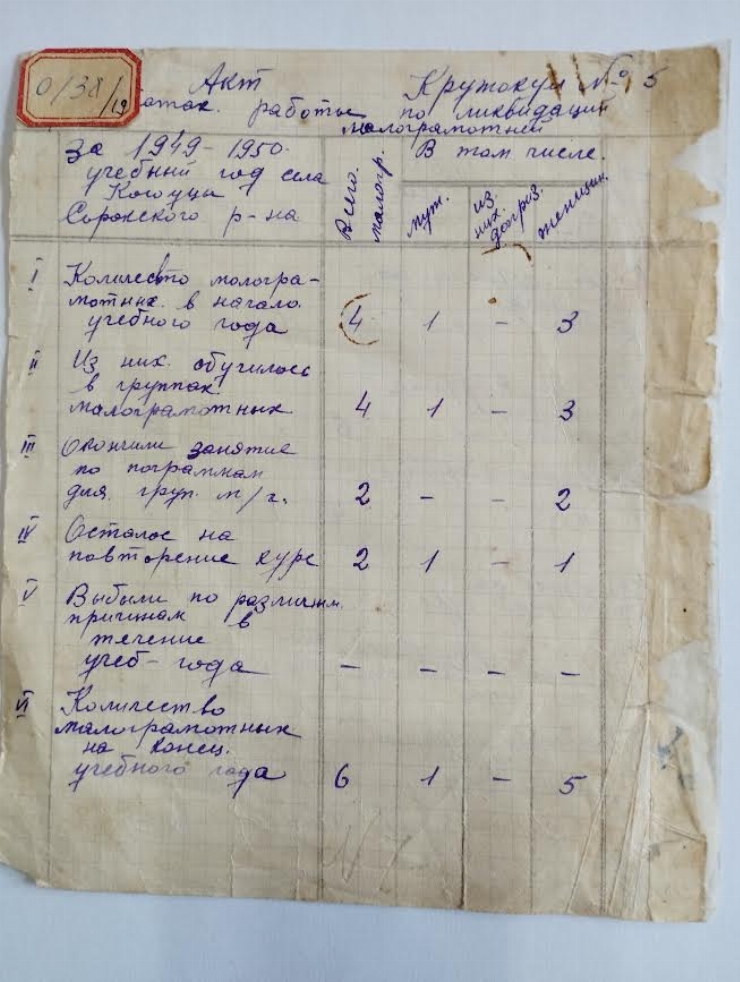 0/38/19
Акт Кружокул № 5
работы по ликвидации
малограмотней
за 1949-1950.
учебный год села
Когоуцы
Сорокского р-на
Всего.
малогр.
В том числе.
муж.
из
них.
женщин.
I Количество малогра-
мотных. в начало.
учебного года 4 1 - 3
II Из них. обучилось
в группах
малограмотных 4 1 - 3
III Окончили занятие
по пограммам
для. груп. м/г. 2 - - 2
IV Осталос на
повторение курс 2 1 - 1
V Выбыли по различным.
причинам в
течение
учеб-года - - - -
VI Количество
малограмотных
на конец.
учебного года 6 1 - 5